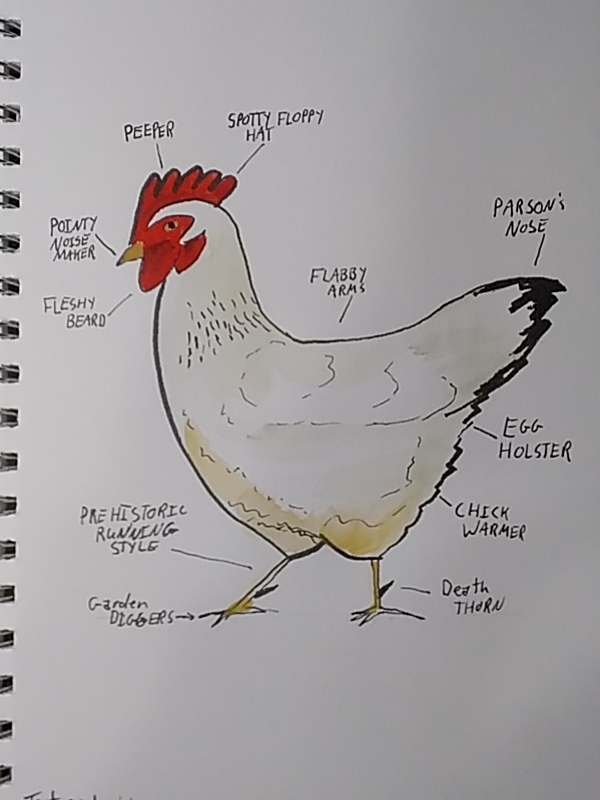 PEEPER
SPOTTY FLOPPY
HAT
POINTY
NOISE
MAKER
FLESHY
BEARD
FLABBY
ARMS
PARSON'S
NOSE
EGG
HOLSTER
CHICK
WARMER
PREHISTORIC
RUNNING
STYLE
Garden
DIGGERS
Death
THORN